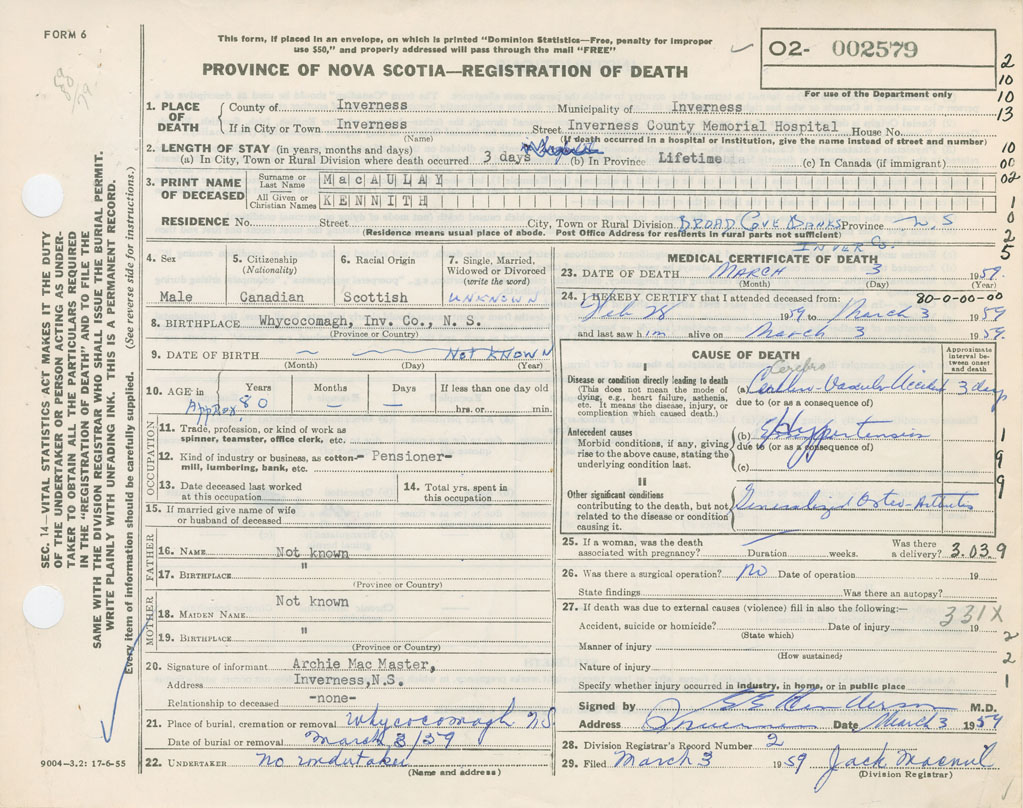 FORM 6
This form, if placed in an envelope, on which is printed "Dominion Statistics—Free, penalty for improper
use $50," and properly addressed will pass through the mail "FREE"
PROVINCE OF NOVA SCOTIA—REGISTRATION OF DEATH
O2- 002579
For use of the Department only
1. PLACE OF DEATH
County of Inverness Municipality of Inverness
If in City or Town Inverness Street Inverness County Memorial Hospital House No.
(Name) (If death occurred in a hospital or institution, give the name instead of street and number)
2. LENGTH OF STAY (in years, months and days)
(a) In City, Town or Rural Division where death occurred 3 days (b) In Province Lifetime (c) In Canada (if immigrant)
3. PRINT NAME OF DECEASED
Surname or Last Name MacAULAY
All Given or Christian Names KENNITH
RESIDENCE No. Street City, Town or Rural Division BROAD COVE BANKS Province N.S
(Residence means usual place of abode. Post Office Address for residents in rural parts not sufficient)
INVER Co.
4. Sex
Male
5. Citizenship
(Nationality)
Canadian
6. Racial Origin
Scottish
7. Single, Married,
Widowed or Divorced
(write the word)
UNKNOWN
8. BIRTHPLACE Whycocomagh, Inv. Co., N. S.
(Province or Country)
9. DATE OF BIRTH — — NOT KNOWN
(Month) (Day) (Year)
10. AGE in
Years Months Days If less than one day old
Approx 80 — — hrs. or min.
OCCUPATION
11. Trade, profession, or kind of work as
spinner, teamster, office clerk, etc.
12. Kind of industry or business, as cotton-
mill, lumbering, bank, etc.
- Pensioner-
13. Date deceased last worked
at this occupation
14. Total yrs. spent in
this occupation
15. If married give name of wife
or husband of deceased
FATHER
16. NAME Not known
17. BIRTHPLACE "
(Province or Country)
MOTHER
18. MAIDEN NAME Not known
19. BIRTHPLACE "
(Province or Country)
20. Signature of informant Archie Mac Master,
Address Inverness,N.S.
Relationship to deceased -none-
21. Place of burial, cremation or removal Whycocomagh N.S.
Date of burial or removal March 3/59
22. UNDERTAKER No undertaker
(Name and address)
MEDICAL CERTIFICATE OF DEATH
23. DATE OF DEATH MARCH 3 1959.
(Month) (Day) (Year)
24. I HEREBY CERTIFY that I attended deceased from: 80-0-00-00
Feb 28 1959 to March 3 1959
and last saw him alive on March 3 1959.
CAUSE OF DEATH
Approximate
interval be-
tween onset
and death
I
Disease or condition directly leading to death
(This does not mean the mode of
dying, e.g., heart failure, asthenia,
etc. It means the disease, injury, or
complication which caused death.)
Cerebro
(a) Vascular Accident 3 days
due to (or as a consequence of)
Antecedent causes
Morbid conditions, if any, giving
rise to the above cause, stating the
underlying condition last.
(b) Hypertension
due to (or as a consequence of)
(c)
II
Other significant conditions
contributing to the death, but not
related to the disease or condition
causing it.
Generalized Osteo-Arthritis
25. If a woman, was the death
associated with pregnancy? — Duration weeks. Was there
a delivery? 3.03.9
26. Was there a surgical operation? No Date of operation 19
State findings Was there an autopsy?
27. If death was due to external causes (violence) fill in also the following:—
331X
Accident, suicide or homicide? Date of injury 19
(State which)
Manner of injury
(How sustained)
Nature of injury
Specify whether injury occurred in industry, in home, or in public place
Signed by M.D.
Address Inverness Date March 3 1959
28. Division Registrar's Record Number 2
29. Filed March 3 1959 Jack Macneil
(Division Registrar)
2
10
10
13
10
00
02
1
0
2
5
1
9
9
2
2
1
SEC. 14—VITAL STATISTICS ACT MAKES IT THE DUTY
OF THE UNDERTAKER OR PERSON ACTING AS UNDER-
TAKER TO OBTAIN ALL THE PARTICULARS REQUIRED
IN THE "REGISTRATION OF DEATH" AND TO FILE THE
SAME WITH THE DIVISION REGISTRAR WHO SHALL ISSUE THE BURIAL PERMIT.
WRITE PLAINLY WITH UNFADING INK. THIS IS A PERMANENT RECORD.
Every item of information should be carefully supplied. (See reverse side for instructions.)
9004-3.2: 17-6-55